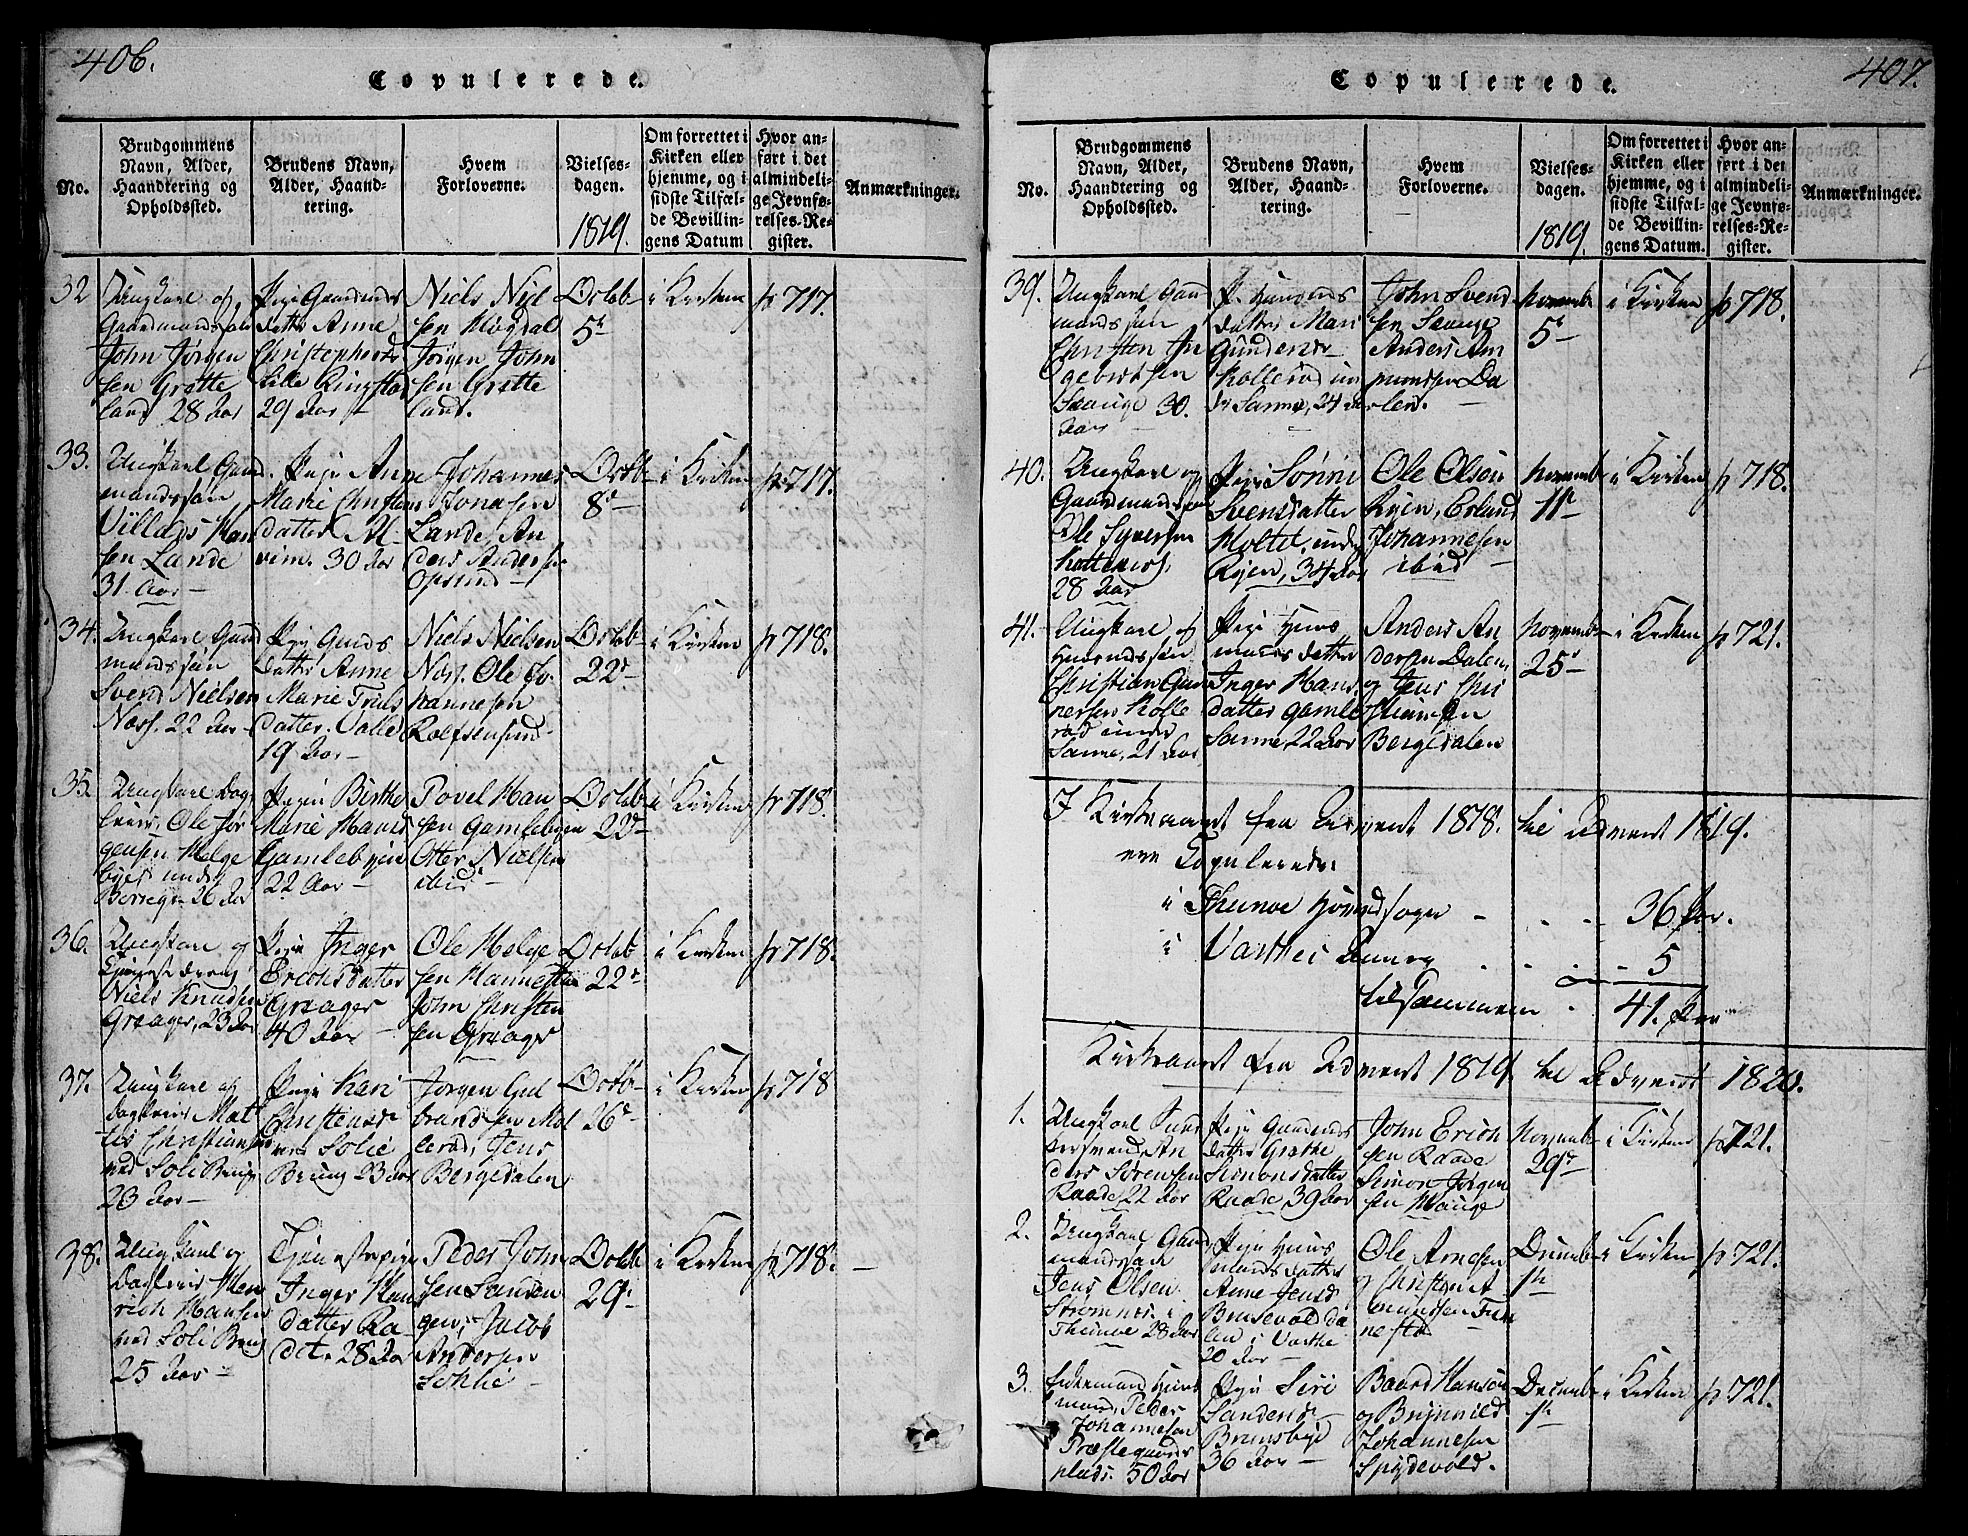 406.
Copulerede.
No.
Brudgommens
Navn, Alder,
Haandtering og
Opholdssted.
Brudens Navn,
Alder, Haand-
tering.
Hvem
Forloverne.
Vielses-
dagen.
1819.
Om forrettet i
Kirken eller
hjemme, og i
sidste Tilfæl-
de Bevillin-
gens Datum
Hvor an-
ført i det
almindeli-
ge Jevnfø-
relses-Re-
gister.
Anmærkninger.
32
Ungkarl og
Gaardmandssøn
John Jørgen
sen Grotte
land 28 Aar
Pige Gaardmds
datter Anne
Christophersdr
Lille Ringstad
29 Aar
Niels Niel
sen Høgdal
Jørgen John
sen Grotte
land.
Octob
5te
i Kirken
p 717.
33.
Ungkarl Gaard
mandssøn
Villads Han
sen Lande
31 Aar
Pige Anne
Marie Christens
datter Al-
vim. 30 Aar
Johannes
Jonasen
Lande, An
ders Anders
Opsund
Octb
8de
i Kirken
p 717.
34.
Ungkarl Gaard
mandssøn
Svend Nielsen
Næss. 22 Aar
Pige Gaards
datter Anne
Marie Truls
datter. Valle
19 Aar
Niels Nielsen
Næss. Ole Jo
hannesen
Rolfsensund
Octob
22de
i Kirken
p 718.
35.
Ungkarl Dag
leier, Ole Jør
gensen Helge
bye under
Borregn 26 Aar
Pigen Birthe
Marie Hansd
Gamlebyen
22 Aar
Povel Han
sen Gamlebyen
Otter Nielsen
ibid
Octob
22de
i Kirken
p 718.
36.
Ungkarl og
Tjenestedreng
Niels Knudsen
Graager, 23 Aar
Pige Inger
Erichsdatter
Graager
40 Aar
Ole Helge
sen Hannestad
John Christen
sen Graager
Octob
22de
i Kirken
p 718.
37.
Ungkarl og
Dagleier Mat
tis Christiansen
ved Soli Brug
23 Aar
Pige Kari
Christensdr
ved Solie
Brug 23 Aar
Jørgen Gul
brandsen Møl
lerød, Jens
Bergedalen
Octb
26de
i Kirken
p 718
38.
Ungkarl og
Dagleier Hen
rich Hansen
ved Soli Brug
25 Aar
Tjenestepige
Inger Hans
datter Ra
det. 28 Aar
Peder John
sen Sanden
gen, Jacob
Andersen
Sohlie
Octob
29de
i Kirken
p 718.
407.
Copulerede.
No.
Brudgommens
Navn, Alder,
Haandtering og
Opholdssted.
Brudens Navn,
Alder, Haand-
tering.
Hvem
Forloverne.
Vielses-
dagen.
1819.
Om forrettet i
Kirken eller
hjemme, og i
sidste Tilfæl-
de Bevillin-
gens Datum.
Hvor an-
ført i det
almindeli-
ge Jevnfø-
relses-Re-
gister.
Anmærkninger.
39.
Ungkarl Gaard
mandssøn
Christen In
gebretsen
Sauge 30.
Aar
P. Huusmds
datter Mari
Gundersdr
Kollerød un
der Sanne, 24 Aar
John Svend
sen Sauge
Anders Am
mundsen Da
len.
Novemb
5te
i Kirken
p 718.
40.
Ungkarl og
Gaardmandssøn
Ole Syversen
Kottenes,
28 Aar
Pige Sønni
Svensdatter
Holtet, under
Ryen, 34 Aar
Ole Olsøn
Ryen, Erlund
Johannesen
ibid
Novemb
11te
i Kirken
p 718.
41.
Ungkarl og
Huusmdssøn
Christian Gun
nersen Kolle
rød under
Sanne, 21 Aar
Pige Huus
mands datter
Inger Hans
datter Gamle
Sanne, 22 Aar
Anders An
dersen Dalen
og Jens Chri
stiansen
Bergedalen
Novemb
25de
i Kirken
p 721.
I Kirkeaaret fra Advent 1818. til Advent 1819.
ere Copulerede
i Thunøe Hovedsogn - - - 36 Par.
i Varthei Annex - - - 5
tilsammen - 41. Par
Kirkeaaret fra Advent 1819 til Advent 1820.
1.
Ungkarl
An
ders Sørensen
Raade, 22 Aar
Pige Gaardmds
datter Grethe
Simonsdatter
Raade 39 Aar
John Erich
sen Raade
Simon Jørgen
sen Hauge
Novemb
29de
i Kirken
p 721.
2.
Ungkarl Gaard
mandssøn
Jens Olsen
Strømnes i
Thunøe 28 Aar
Pige Huus
mands datter
Anne Jensdr
Brusevold da
len i Varthe
20 Aar
Ole Arnesen
og Christen A
mundsen Tun
nestad
Decemb
1ste
i Kirken
p 721.
3.
Enkemand Huus
mand, Peder
Johannesen
Præstegaards
plads. 50 Aar
Pige Siri
Sandersdr
Brunsbye
36 Aar
Baard Hansøn
og Brynnild
Johannesen
Spydevold.
Decemb
1ste
i Kirken
p 721.